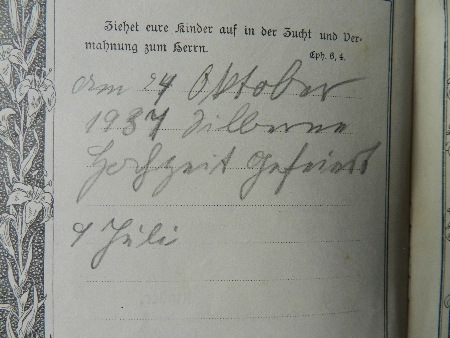 Ziehet eure Kinder auf in der Zucht und Ver-
mahnung zum Herrn.
Eph. 6, 4.
Am 24 Oktober
1937 Silberne
Hochzeit gefeiert
9 Juli